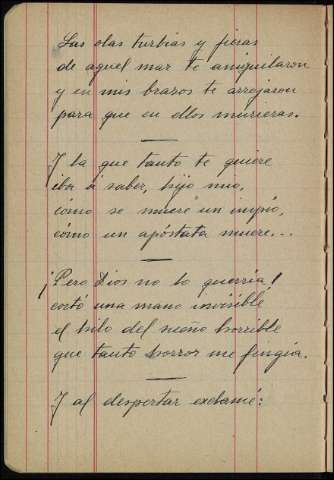 Las olas turbias y fieras
de aquel mar te aniquilaron
y en mis brazos te arrojaron
para que en ellos murieras.
Y la que tanto te quiere
iba á saber, hijo mio,
cómo se muere un impío,
cómo un apóstata muere...
¡Pero Dios no lo querría!
cortó una mano invisible
el hilo del sueño horrible
que tanto horror me fingía.
Y al despertar exclamé: